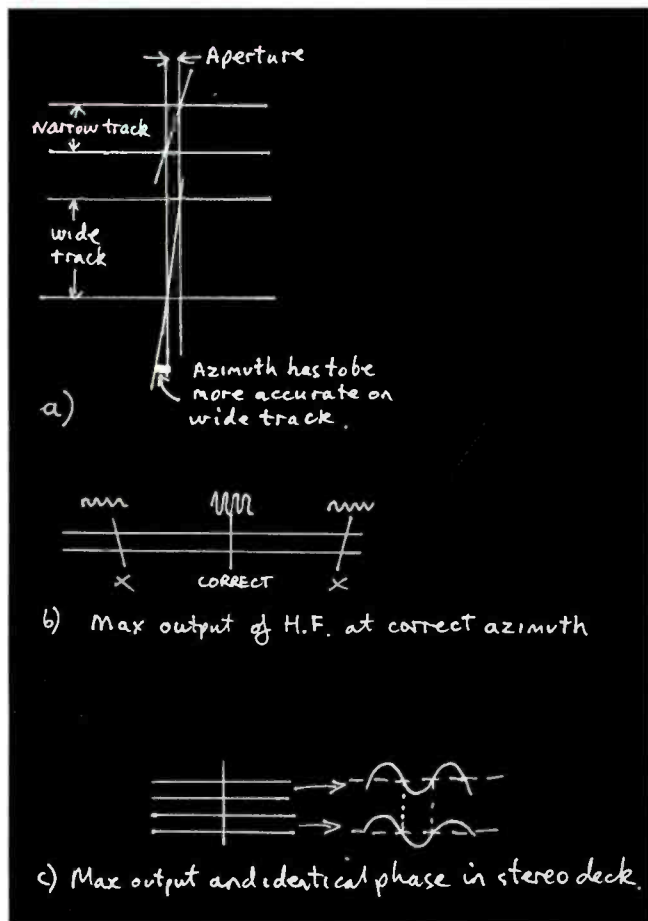 Aperture
Narrow track
wide
track
Azimuth has to be
more accurate on
wide track.
a)
X CORRECT X
b) Max output of H.F. at correct azimuth
c) Max output and identical phase in stereo deck.